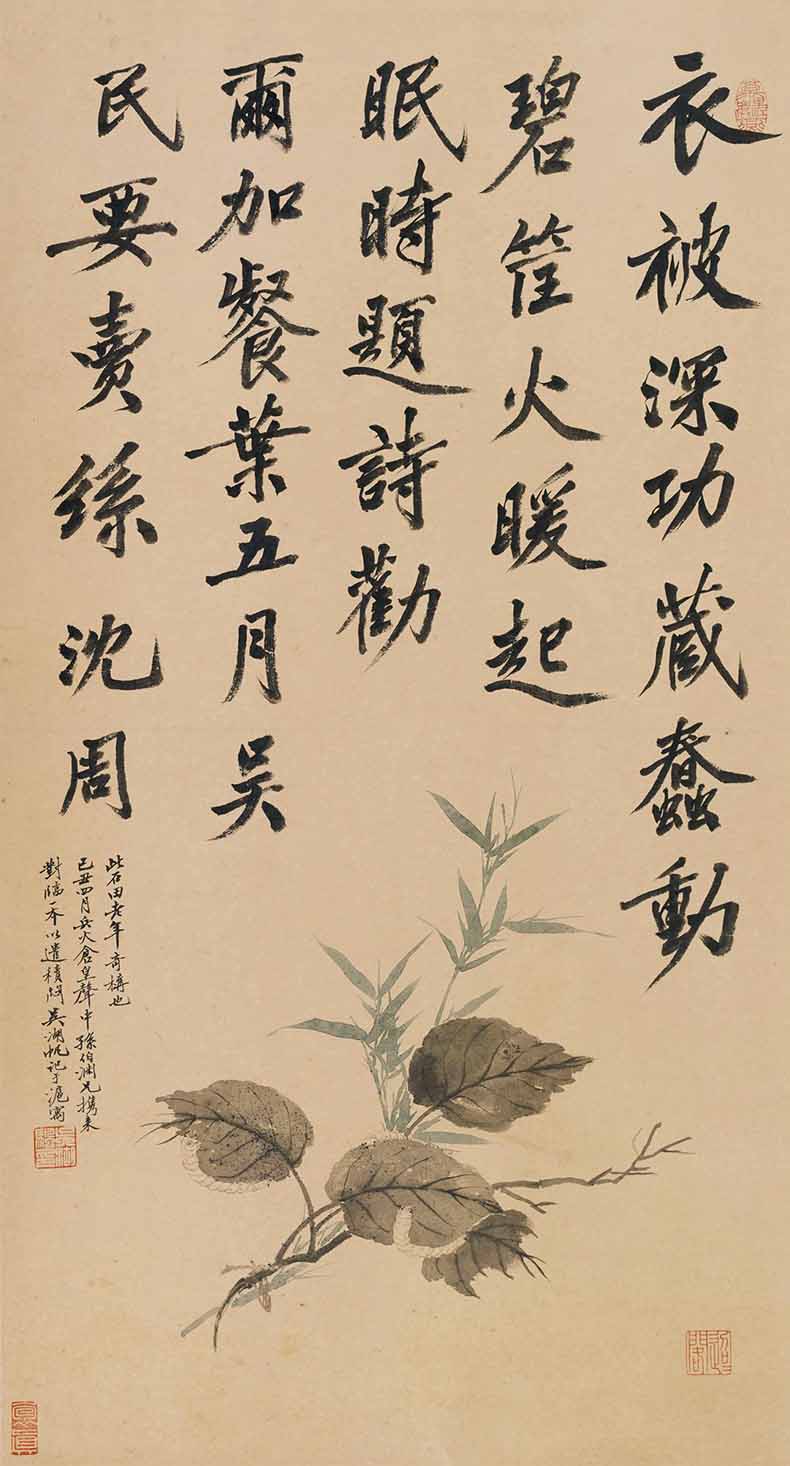 衣被深功藏蠶動
碧筐火暖起
眠時題詩勸
爾加餐葉五月吳
民要賣絲 沈周
此石田老年奇構也
己丑四月兵火倉皇聲中孫伯淵兄攜來
對臨一本以遣積悶 吳湖帆記于滬寓